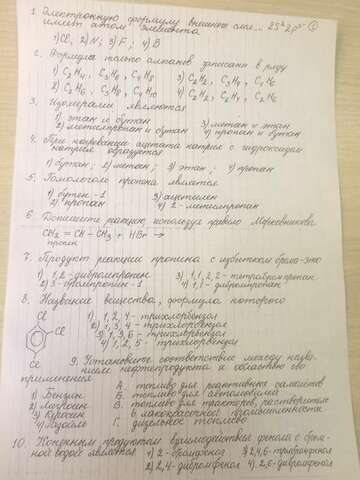 1. Электронную формулу внешнего слоя... 2S²2p⁵
имеет атом элемента
1) Cl; 2) N; 3) F; 4) B
2. Формулы только алканов записан в ряду
1) C₂H₄, C₃H₈, 3) C₂H₂, C₃H₄,
2) C₂H₆, C₃H₈, C₄H₁₀ 4) C₂H₂,
3. Изомерами являются
1) этан и бутан 3) метан и этан
2) метилпропан и бутан 4) пропан и бутан
4. При нагревании ацетата натрия с гидроксидом
натрия образуется
1) бутан; 2) метан; 3) этан; 4) пропан
5. Гомологом пропена является
1) бутен-1 3) ацетилен
2) пропан 4) 2-метилпропан
6. Допишите реакцию, используя правило Морковникова
CH₂ = CH - CH₃ + HBr →
пропен
7. Продукт реакции пропина с избытком брома - это
1) 1,2-дибромпропен 3) 1,1,2,2-тетрабромпропан
2) 3-бромпропин-1 4) 1,1-дибромпропан
8. Название вещества, формула которого
Cl 1) 1,2,4-трихлорбензол
Cl 2) 1,3,4-трихлорбензол
3) 1,3,6-трихлорбензол
Cl 4) 1,2,5-трихлорбензол
9. Установите соответствие между назва-
нием нефтепродукта и областью его
применения А. топливо для реактивных самолетов
1) Бензин Б. топливо для автомобилей
2) Лигроин В. топливо для тракторов, растворители
3) Керосин в лакокрасочной промышленности
4) Газойль Г. дизельное топливо
10. Конечным продуктом взаимодействия фенола с бром-
ной водой является 1) 2-бромфенол 3) 2,4,6-трибромфенол
2) 2,4-дибромфенол 4) 2,6-дибромфенол